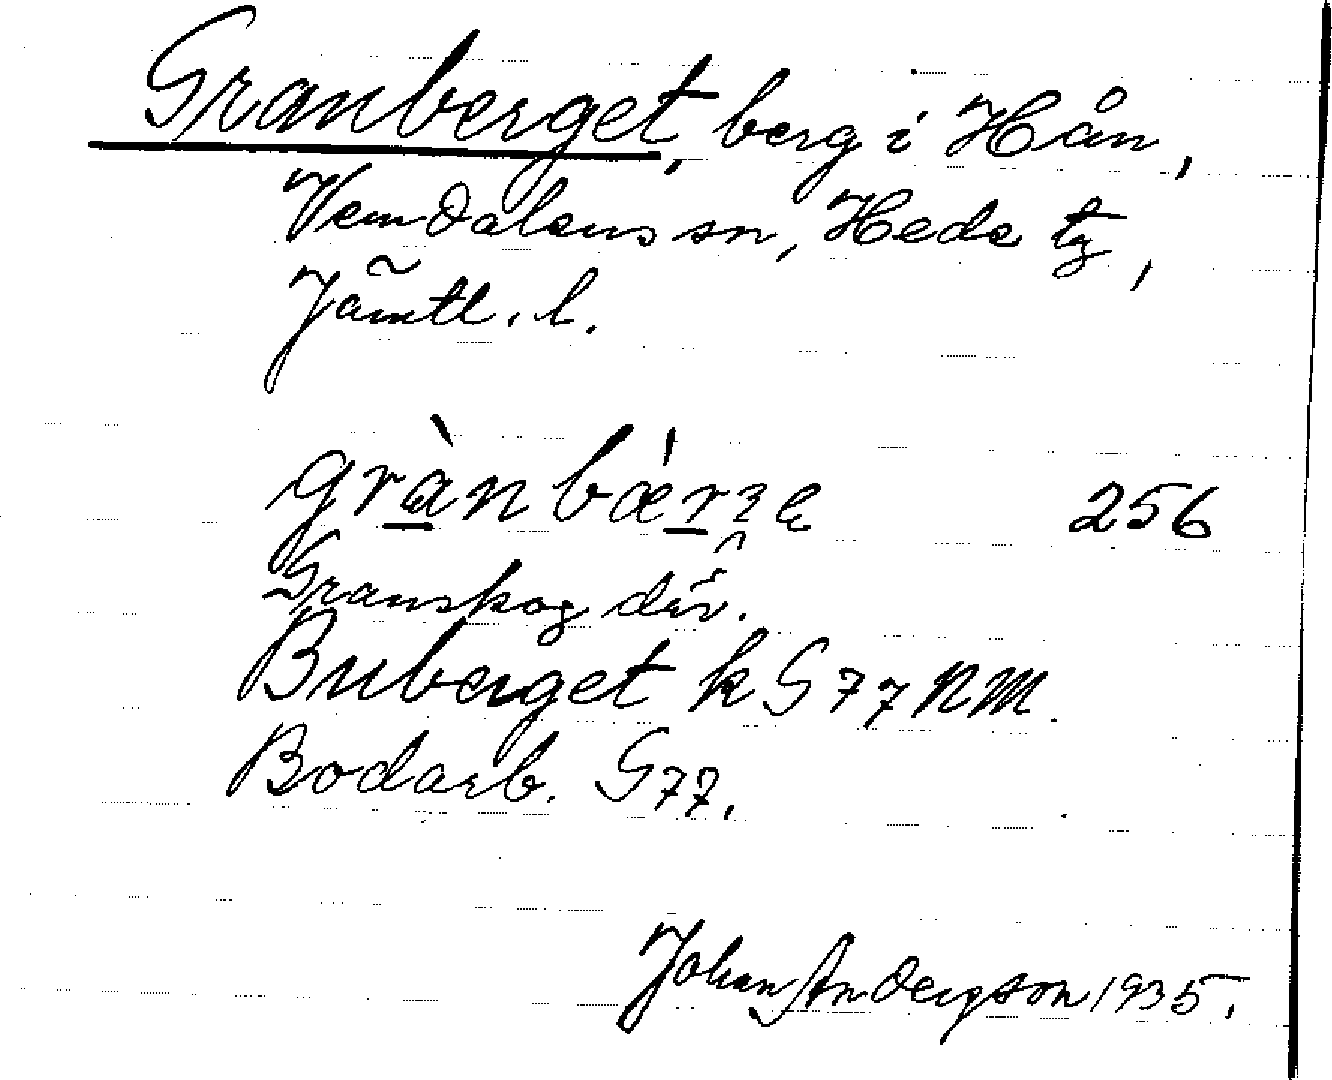 Granberget, berg i Hån,
Vemdalens sn, Hede tg,
Jämtl. l.
grànbǽrʒe 256
Granskog där.
Buberget k G 77 NM.
Bodarb. G 77.
Johan Anderson 1935.